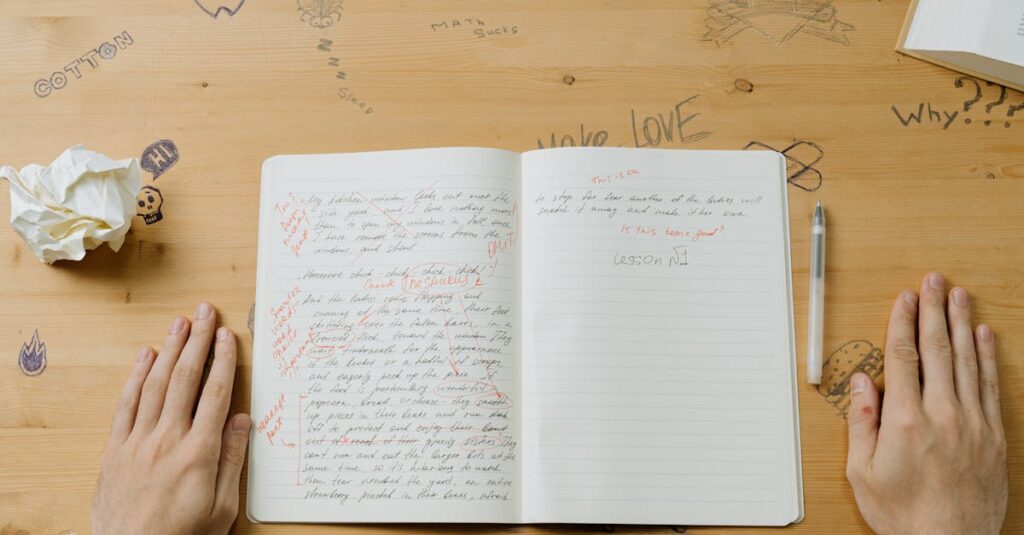 COTTON
ZZZZ
Sleep
MATH
SUCKS
Make LOVE
Why???
HI
My kitchen window looks out over the
side yard and I love nothing more
than to open my windows in fall, once
I have remove the screens from the
windows, and shout.
OMIT
chick-chick, chick-chick!
Check THESAURUS
And the ladies come flapping and
running at the same time, their feet
over the fallen leaves, in a
frenzied flock, toward the window. They
wait underneath for the appearance
of the bucket or a handful of scraps,
and eagerly peck up the place. If
the food is particulary wonderful
popcorn, bread, or cheese - they
up pieces in their beaks and run
off to protect and enjoy their
out of reach of their greedy sisters. They
can't run and eat the larger bits at the
same time, so it's hilarious to watch
them tear around the yard, an entire
strawberry pinched in their beaks, afraid
This is Ok
to stop for fear another of the ladies will
snatch it away and make it her own
Is this topic good?
Lesson №1